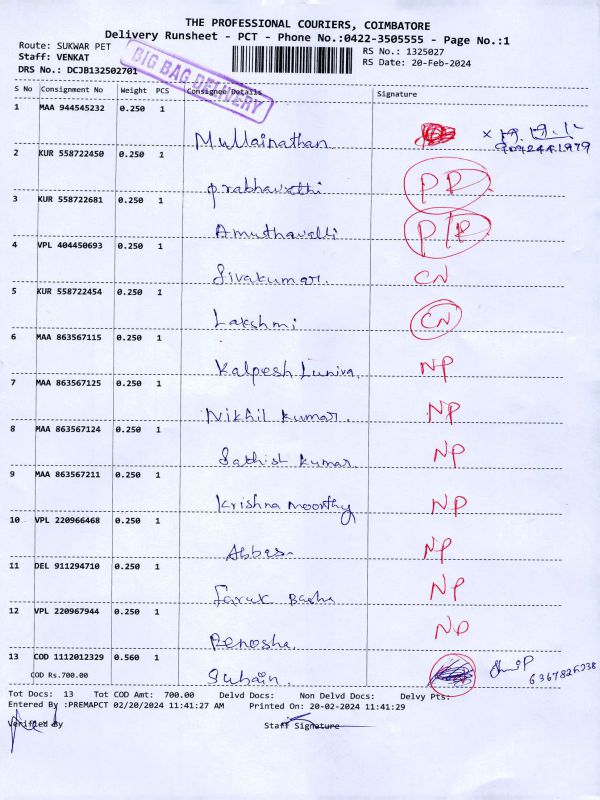 THE PROFESSIONAL COURIERS, COIMBATORE
Delivery Runsheet - PCT - Phone No.:0422-3505555 - Page No.:1
Route: SUKWAR PET
RS No.: 1325027
Staff: VENKAT
RS Date: 20-Feb-2024
DRS No.: DCJB132502701
BIG BAG DELIVERY
S No Consignment No Weight PCS Consignee Details Signature
1 MAA 944545232 0.250 1
Mullainathan
2 KUR 558722450 0.250 1
Prabhavathi PP
3 KUR 558722681 0.250 1
Amuthavalli P/P
4 VPL 404450693 0.250 1
Sivakumar. CN
5 KUR 558722454 0.250 1
Lakshmi CN
6 MAA 863567115 0.250 1
Kalpesh Luniya. NP
7 MAA 863567125 0.250 1
Nikhil Kumar. NP
8 MAA 863567124 0.250 1
Sathish Kumar NP
9 MAA 863567211 0.250 1
Krishna Moorthy NP
10 VPL 220966468 0.250 1
Abbas NP
11 DEL 911294710 0.250 1
Faruk Basha NP
12 VPL 220967944 0.250 1
Renosha. NP
13 COD 1112012329 0.560 1
COD Rs.700.00
Subain.
Tot Docs: 13 Tot COD Amt: 700.00 Delvd Docs: Non Delvd Docs: Delvy Pts:
Entered By :PREMAPCT 02/20/2024 11:41:27 AM Printed On: 20-02-2024 11:41:29
Verified By Staff Signature